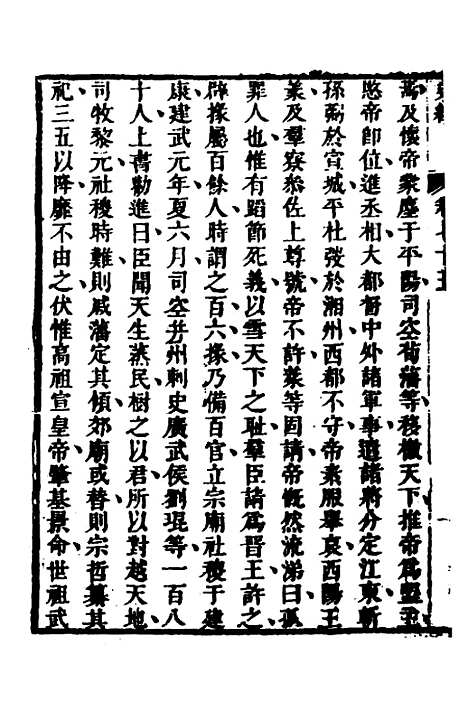 薦及懷帝蒙塵于平陽司空荀藩等移檄天下推帝爲盟主
愍帝即位進丞相大都督中外諸軍事遣諸將分定江東斬
孫弼於宣城平杜弢於湘州西都不守帝素服舉哀西陽王
羕及羣寮叅佐上尊號帝不許羕等固請帝慨然流涕曰孤
罪人也惟有蹈節死義以雪天下之耻羣臣請爲晉王許之
辟掾屬百餘人時謂之百六掾乃備百官立宗廟社稷于建
康建武元年夏六月司空并州刺史廣武侯劉琨等一百八
十人上書勸進曰臣聞天生蒸民樹之以君所以對越天地
司牧黎元社稷時難則戚藩定其傾郊廟或替則宗哲纂其
祀三五以降靡不由之伏惟高祖宣皇帝肇基景命世祖武